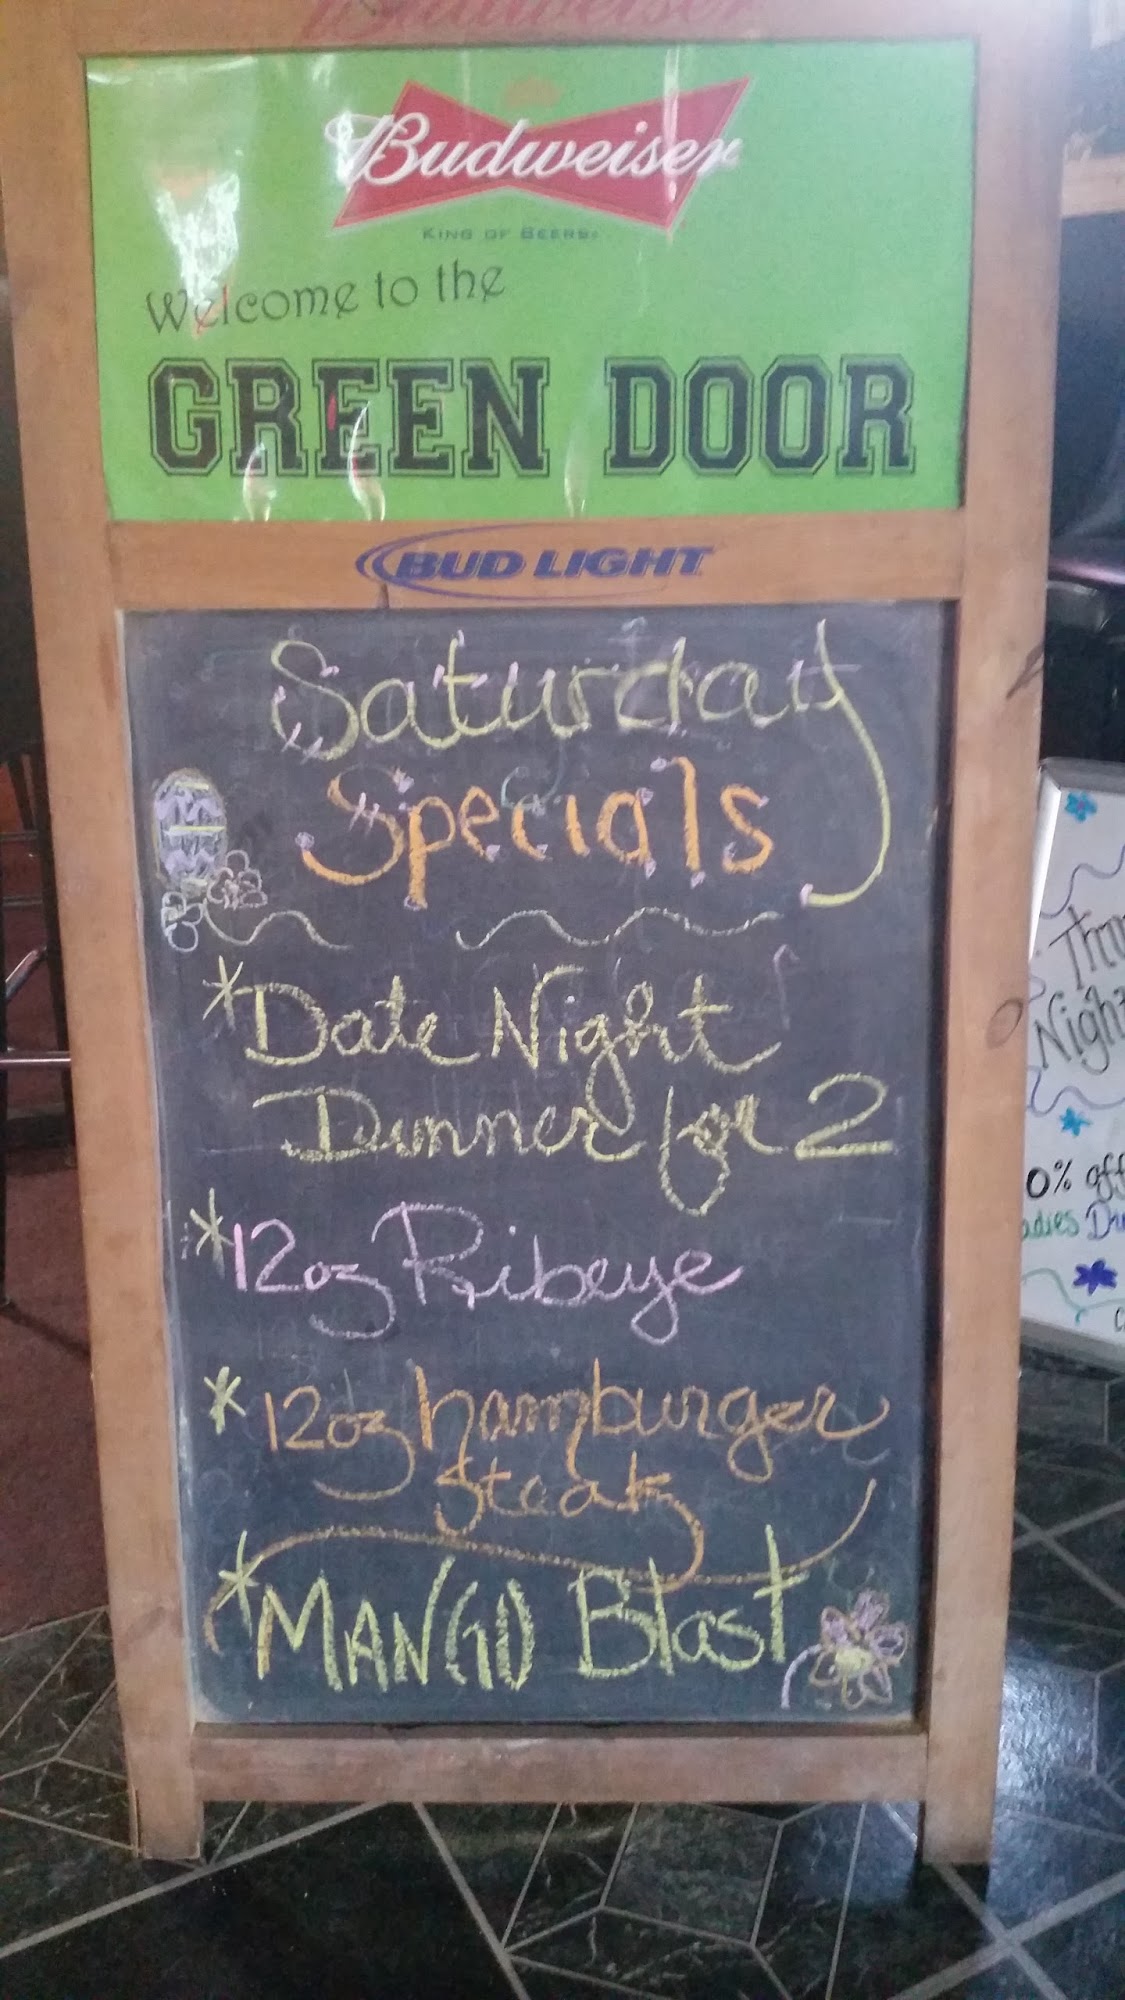 Budweiser
Budweiser
KING OF BEERS
Welcome to the
GREEN DOOR
BUD LIGHT
Saturday
Specials
*Date Night
Dinner for 2
*12oz Ribeye
*12oz hamburger
Steak
*MANGO Blast
Night
0% off